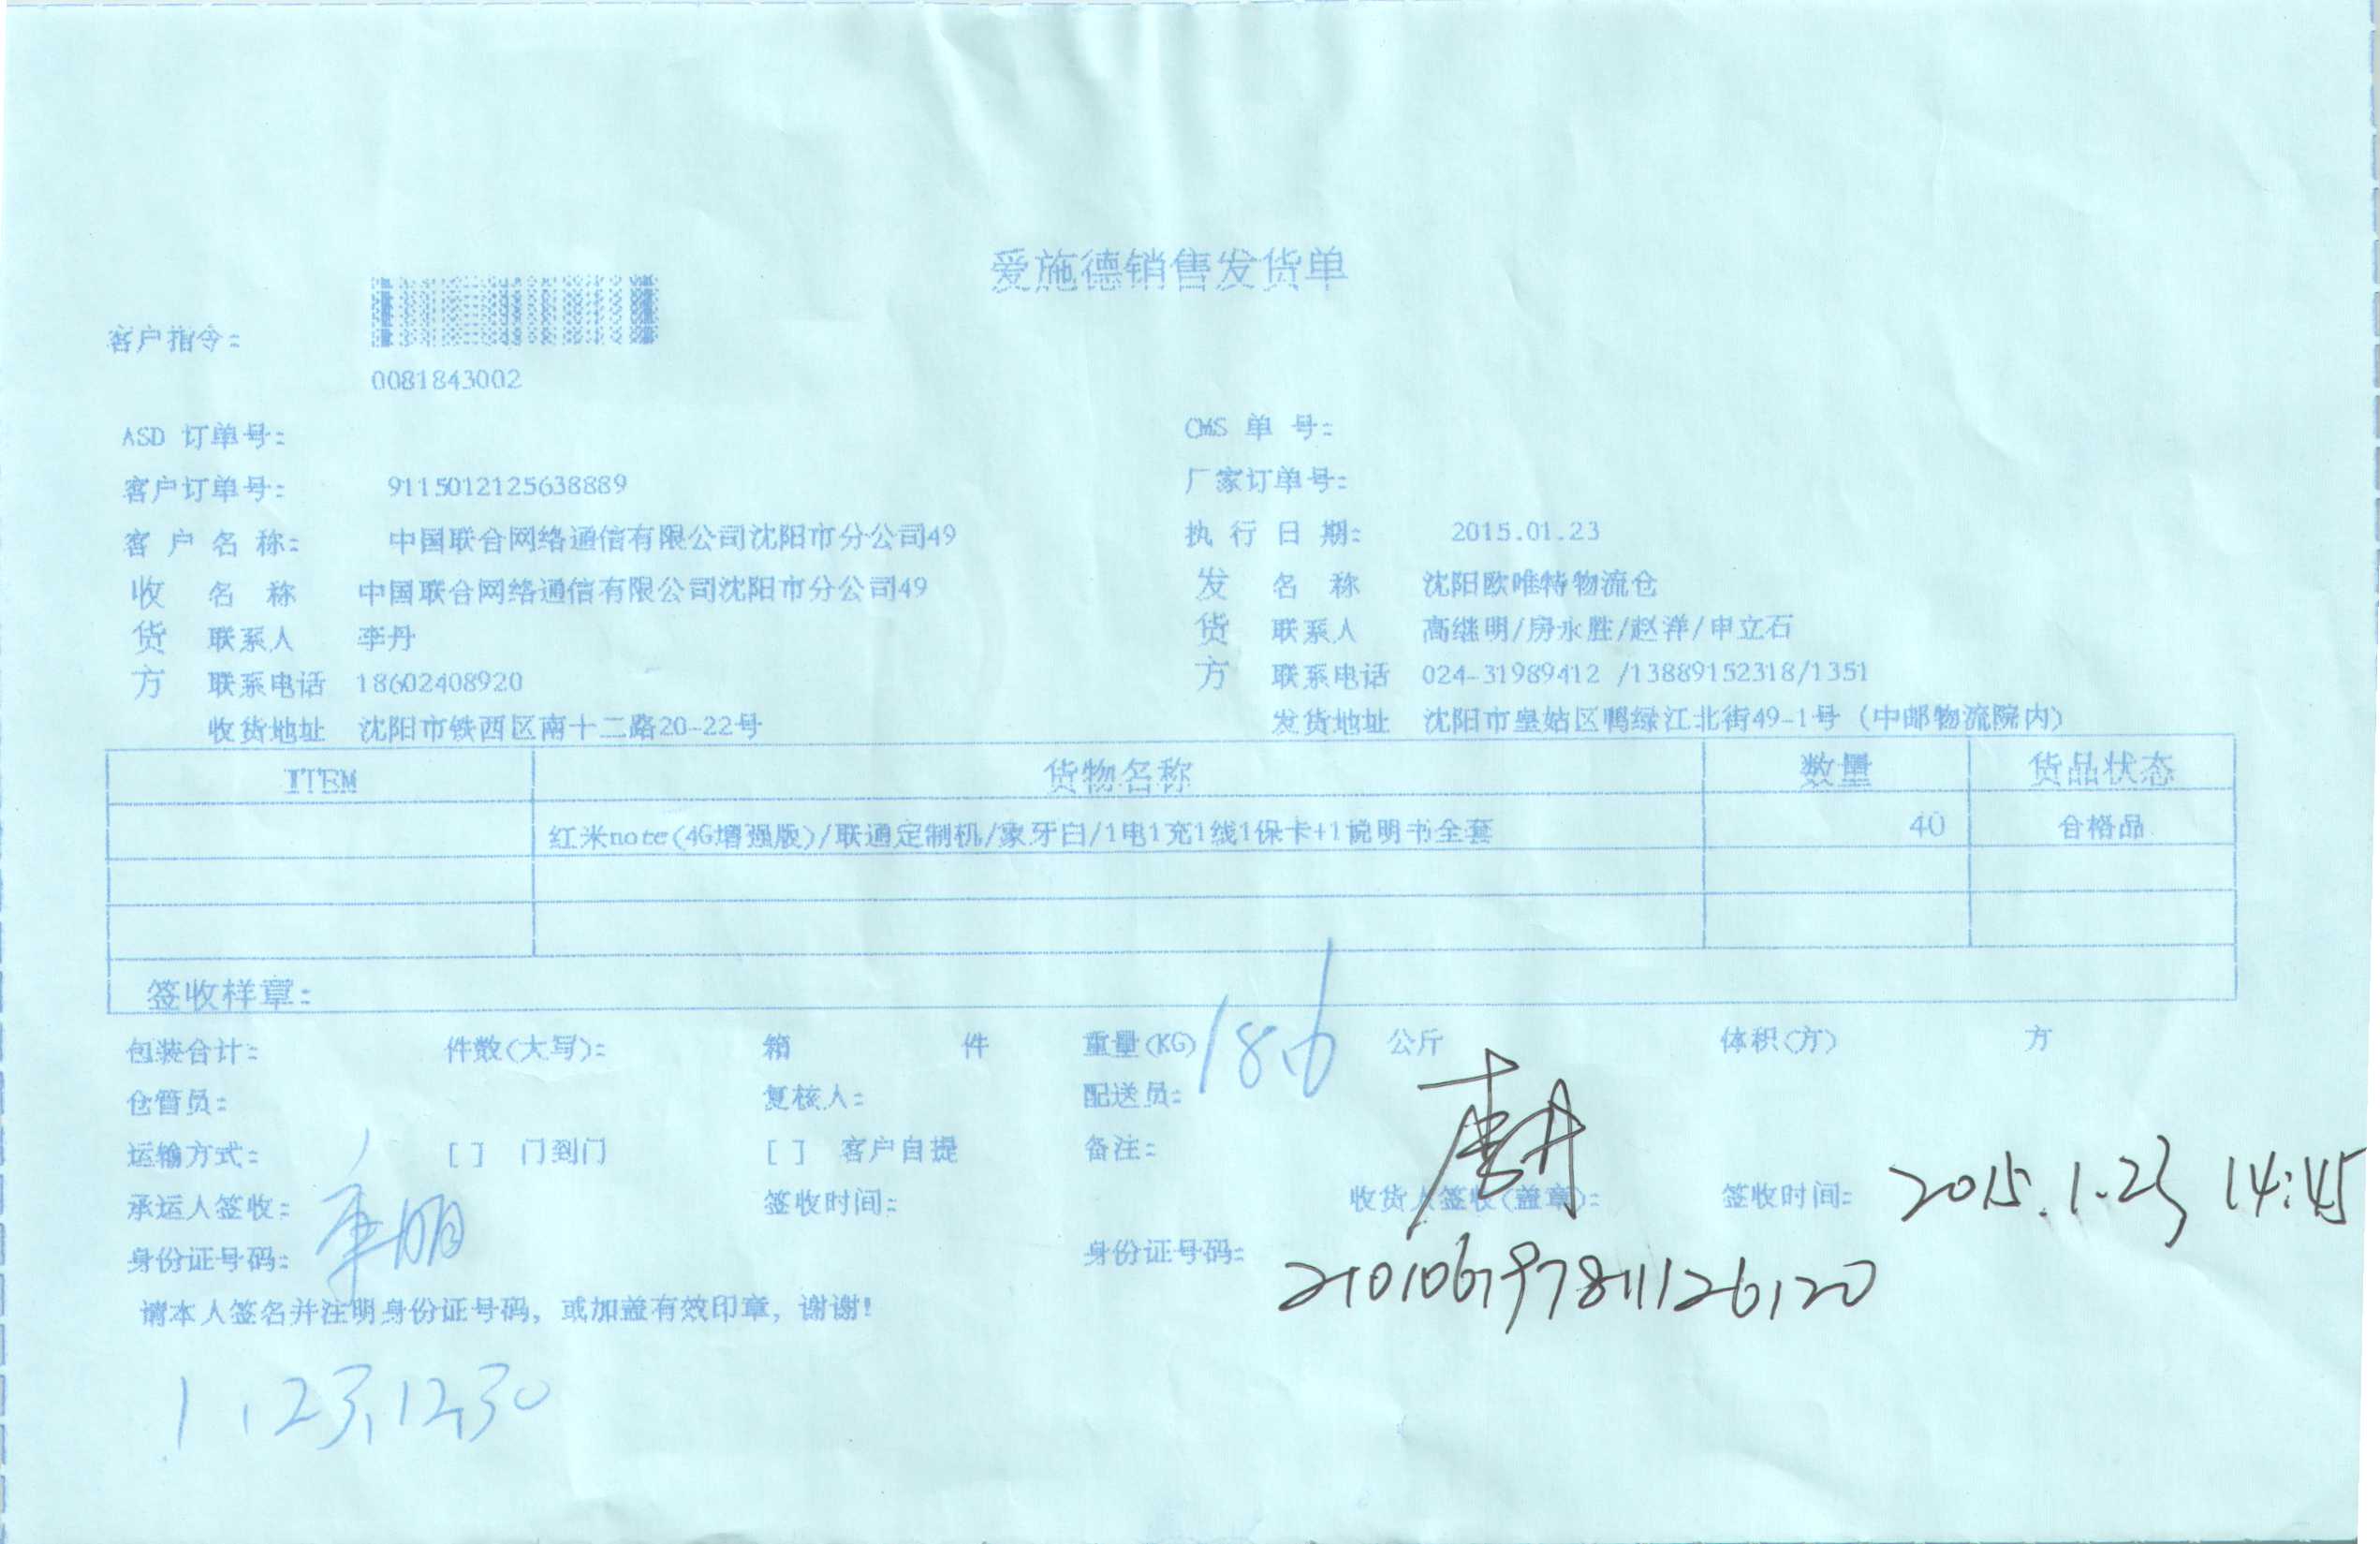 爱施德销售发货单
客户指令:
0081843002
ASD 订单号: CMS 单 号:
客户订单号: 9115012125638889 厂家订单号:
客 户 名 称: 中国联合网络通信有限公司沈阳市分公司49 执 行 日 期: 2015.01.23
收 名 称 中国联合网络通信有限公司沈阳市分公司49 发 名 称 沈阳欧唯特物流仓
货 联系人 李丹 货 联系人 高继明/房永胜/赵洋/申立石
方 联系电话 18602408920 方 联系电话 024-31989412 /13889152318/1351
收货地址 沈阳市铁西区南十二路20-22号 发货地址 沈阳市皇姑区鸭绿江北街49-1号 (中邮物流院内)
ITEM 货物名称 数量 货品状态
红米note(4G增强版)/联通定制机/象牙白/1电1充1线1保卡+1说明书全套 40 合格品
签收样章:
包装合计: 件数(大写): 箱 件 重量(KG) 18.6 公斤 体积(方) 方
仓管员: 复核人: 配送员:
运输方式: [ ] 门到门 [ ] 客户自提 备注:
承运人签收: 签收时间: 收货人签收(盖章): 签收时间: 2015.1.23 14:45
身份证号码: 身份证号码:
请本人签名并注明身份证号码, 或加盖有效印章, 谢谢!
1.23,12,30